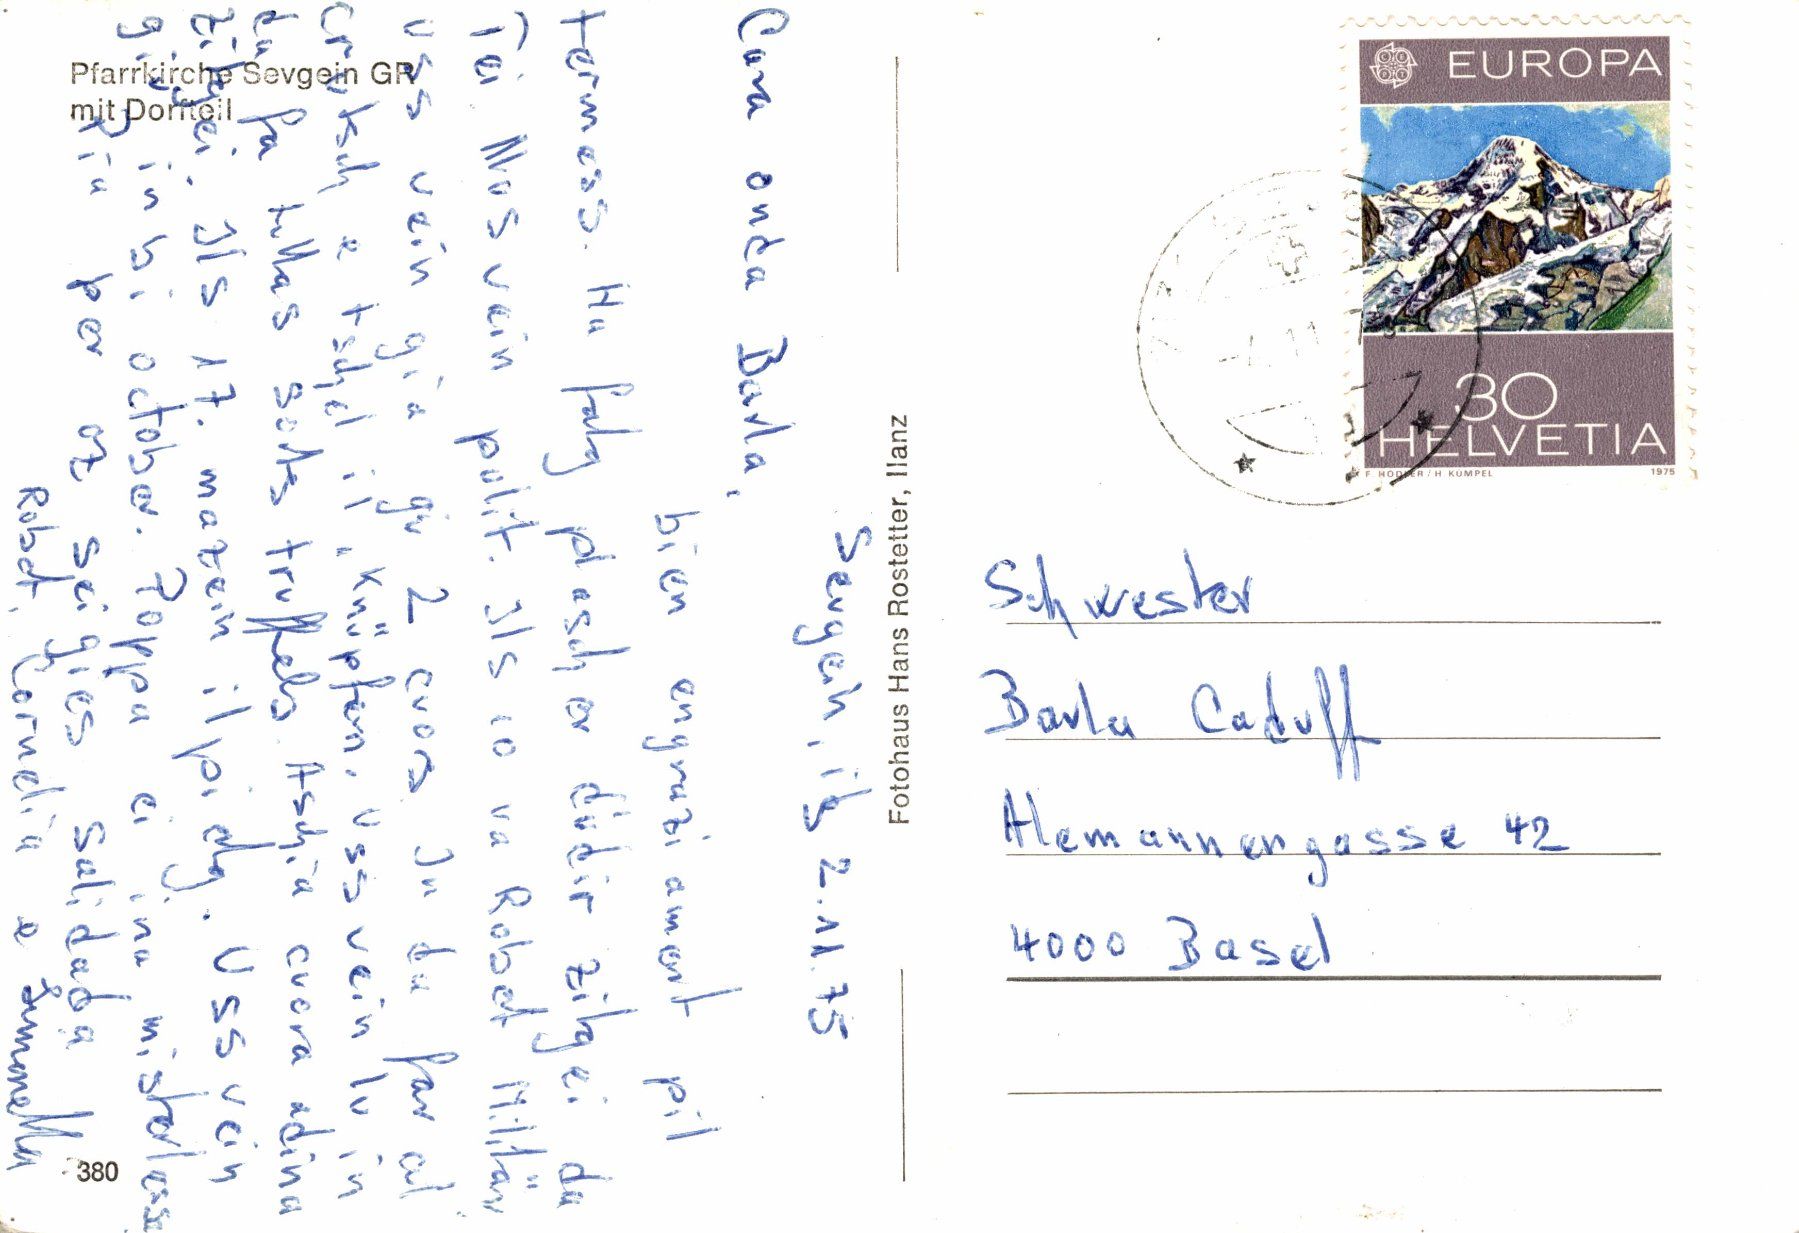 Pfarrkirche Sevgein GR
mit Dorfteil
Sevgein, ils 2.11.75
Cara onda Barla,
bien engraziament pil
termess. Ha fatg plascher d'udir zitgei da
Tei. Nos vein pulit. Ils 10 va Robert Militär
uss vein gia giu 2 cuors. Ju da far al
e tschel il "Knüpfen". Uss vein lu in
da fa tuttas sorts truffels. Aschia cuora adina
zitgei. Ils 17. mazein il pi dlg. Uss vein
giu in bi october. Zoppa ei ina misterlessa
Pia per oz seigies salidada
Robert, Cornelia e
380
Fotohaus Hans Rostetter, Ilanz
EUROPA
30
HELVETIA
F. HODLER / H. KÜMPEL 1975
Schwester
Barla Caduff
Alemannengasse 42
4000 Basel